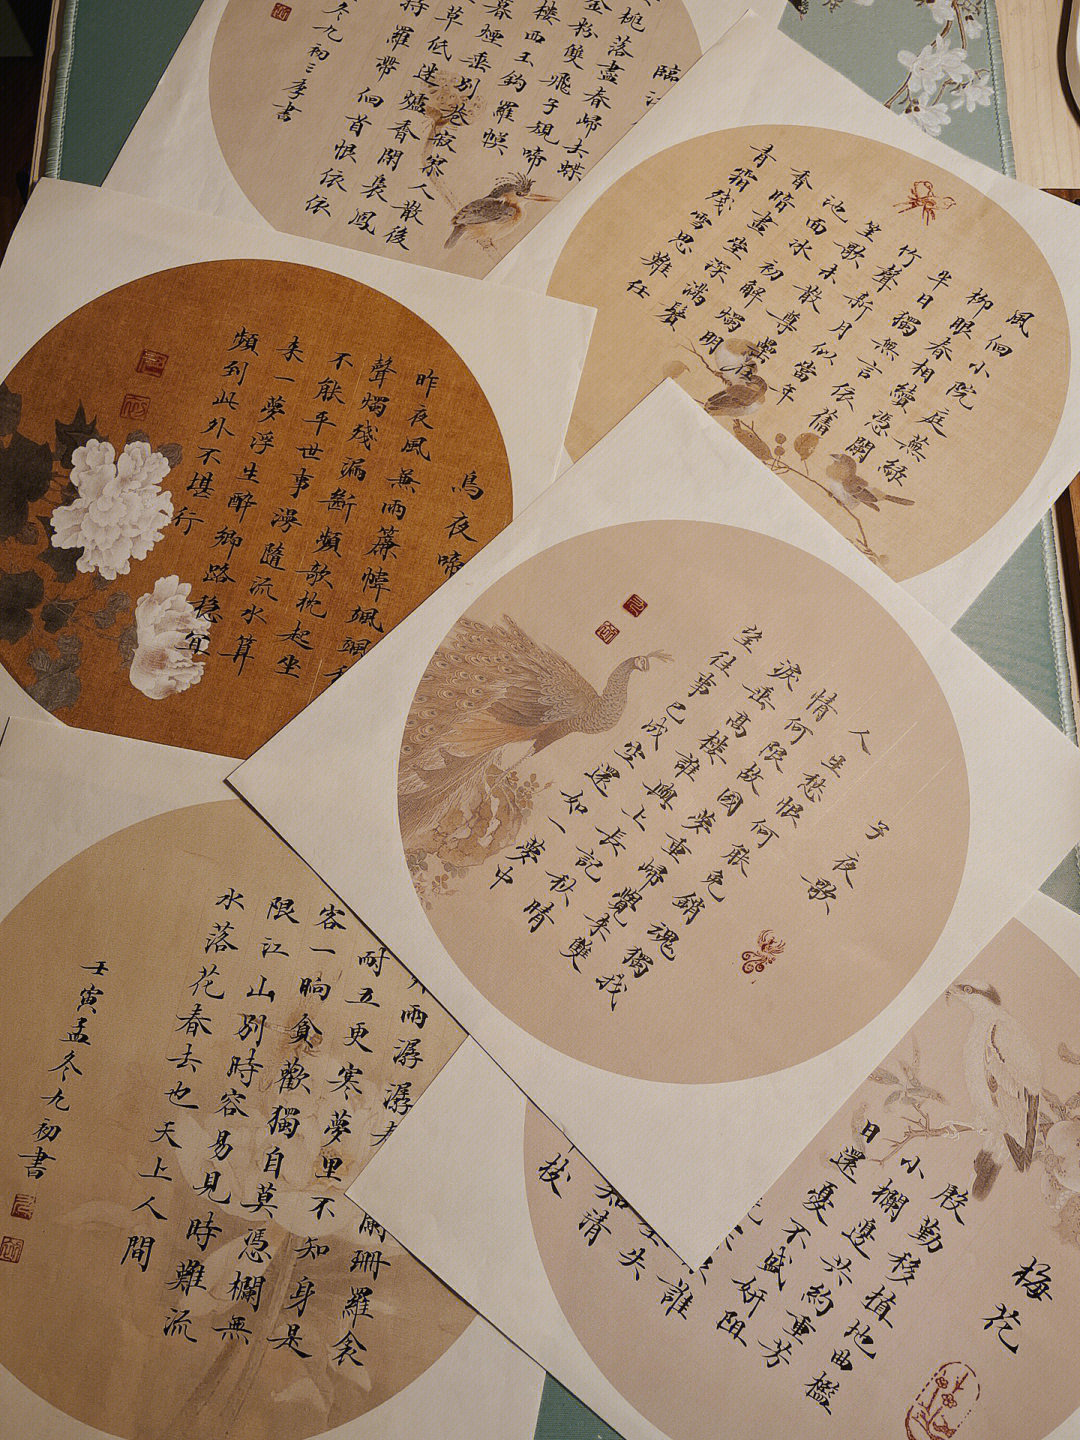 臨
桃落盡春歸去蝶
金粉雙飛子規啼
樓西玉鈎羅幙
暮煙垂別巷寂寥人散後
草低迷爐香閒裊鳳
持羅帶回首恨依依
冬九初三季書
風回小院庭蕪綠
柳眼春相續憑闌
半日獨無言依舊
竹聲新月似當年
笙歌未散尊罍在
池面水初解燭明
香暗畫堂深滿鬢
青霜殘雪思難任
烏夜啼
昨夜風兼雨簾幃颯颯
聲燭殘漏斷頻欹枕起坐
不能平世事漫隨流水算
來一夢浮生醉鄉路穩宜
頻到此外不堪行
子夜歌
人生愁恨何能免銷魂獨我
情何限故國夢重歸覺來雙
淚垂高樓誰與上長記秋晴
望往事已成空還如一夢中
雨潺潺春
闌珊羅衾
耐五更寒夢里不知身是
客一晌貪歡獨自莫憑欄無
限江山別時容易見時難流
水落花春去也天上人間
壬寅孟冬九初書
梅花
殷勤移植地曲檻
小欄邊共約重芳
日還憂不盛妍阻
誰
失
清